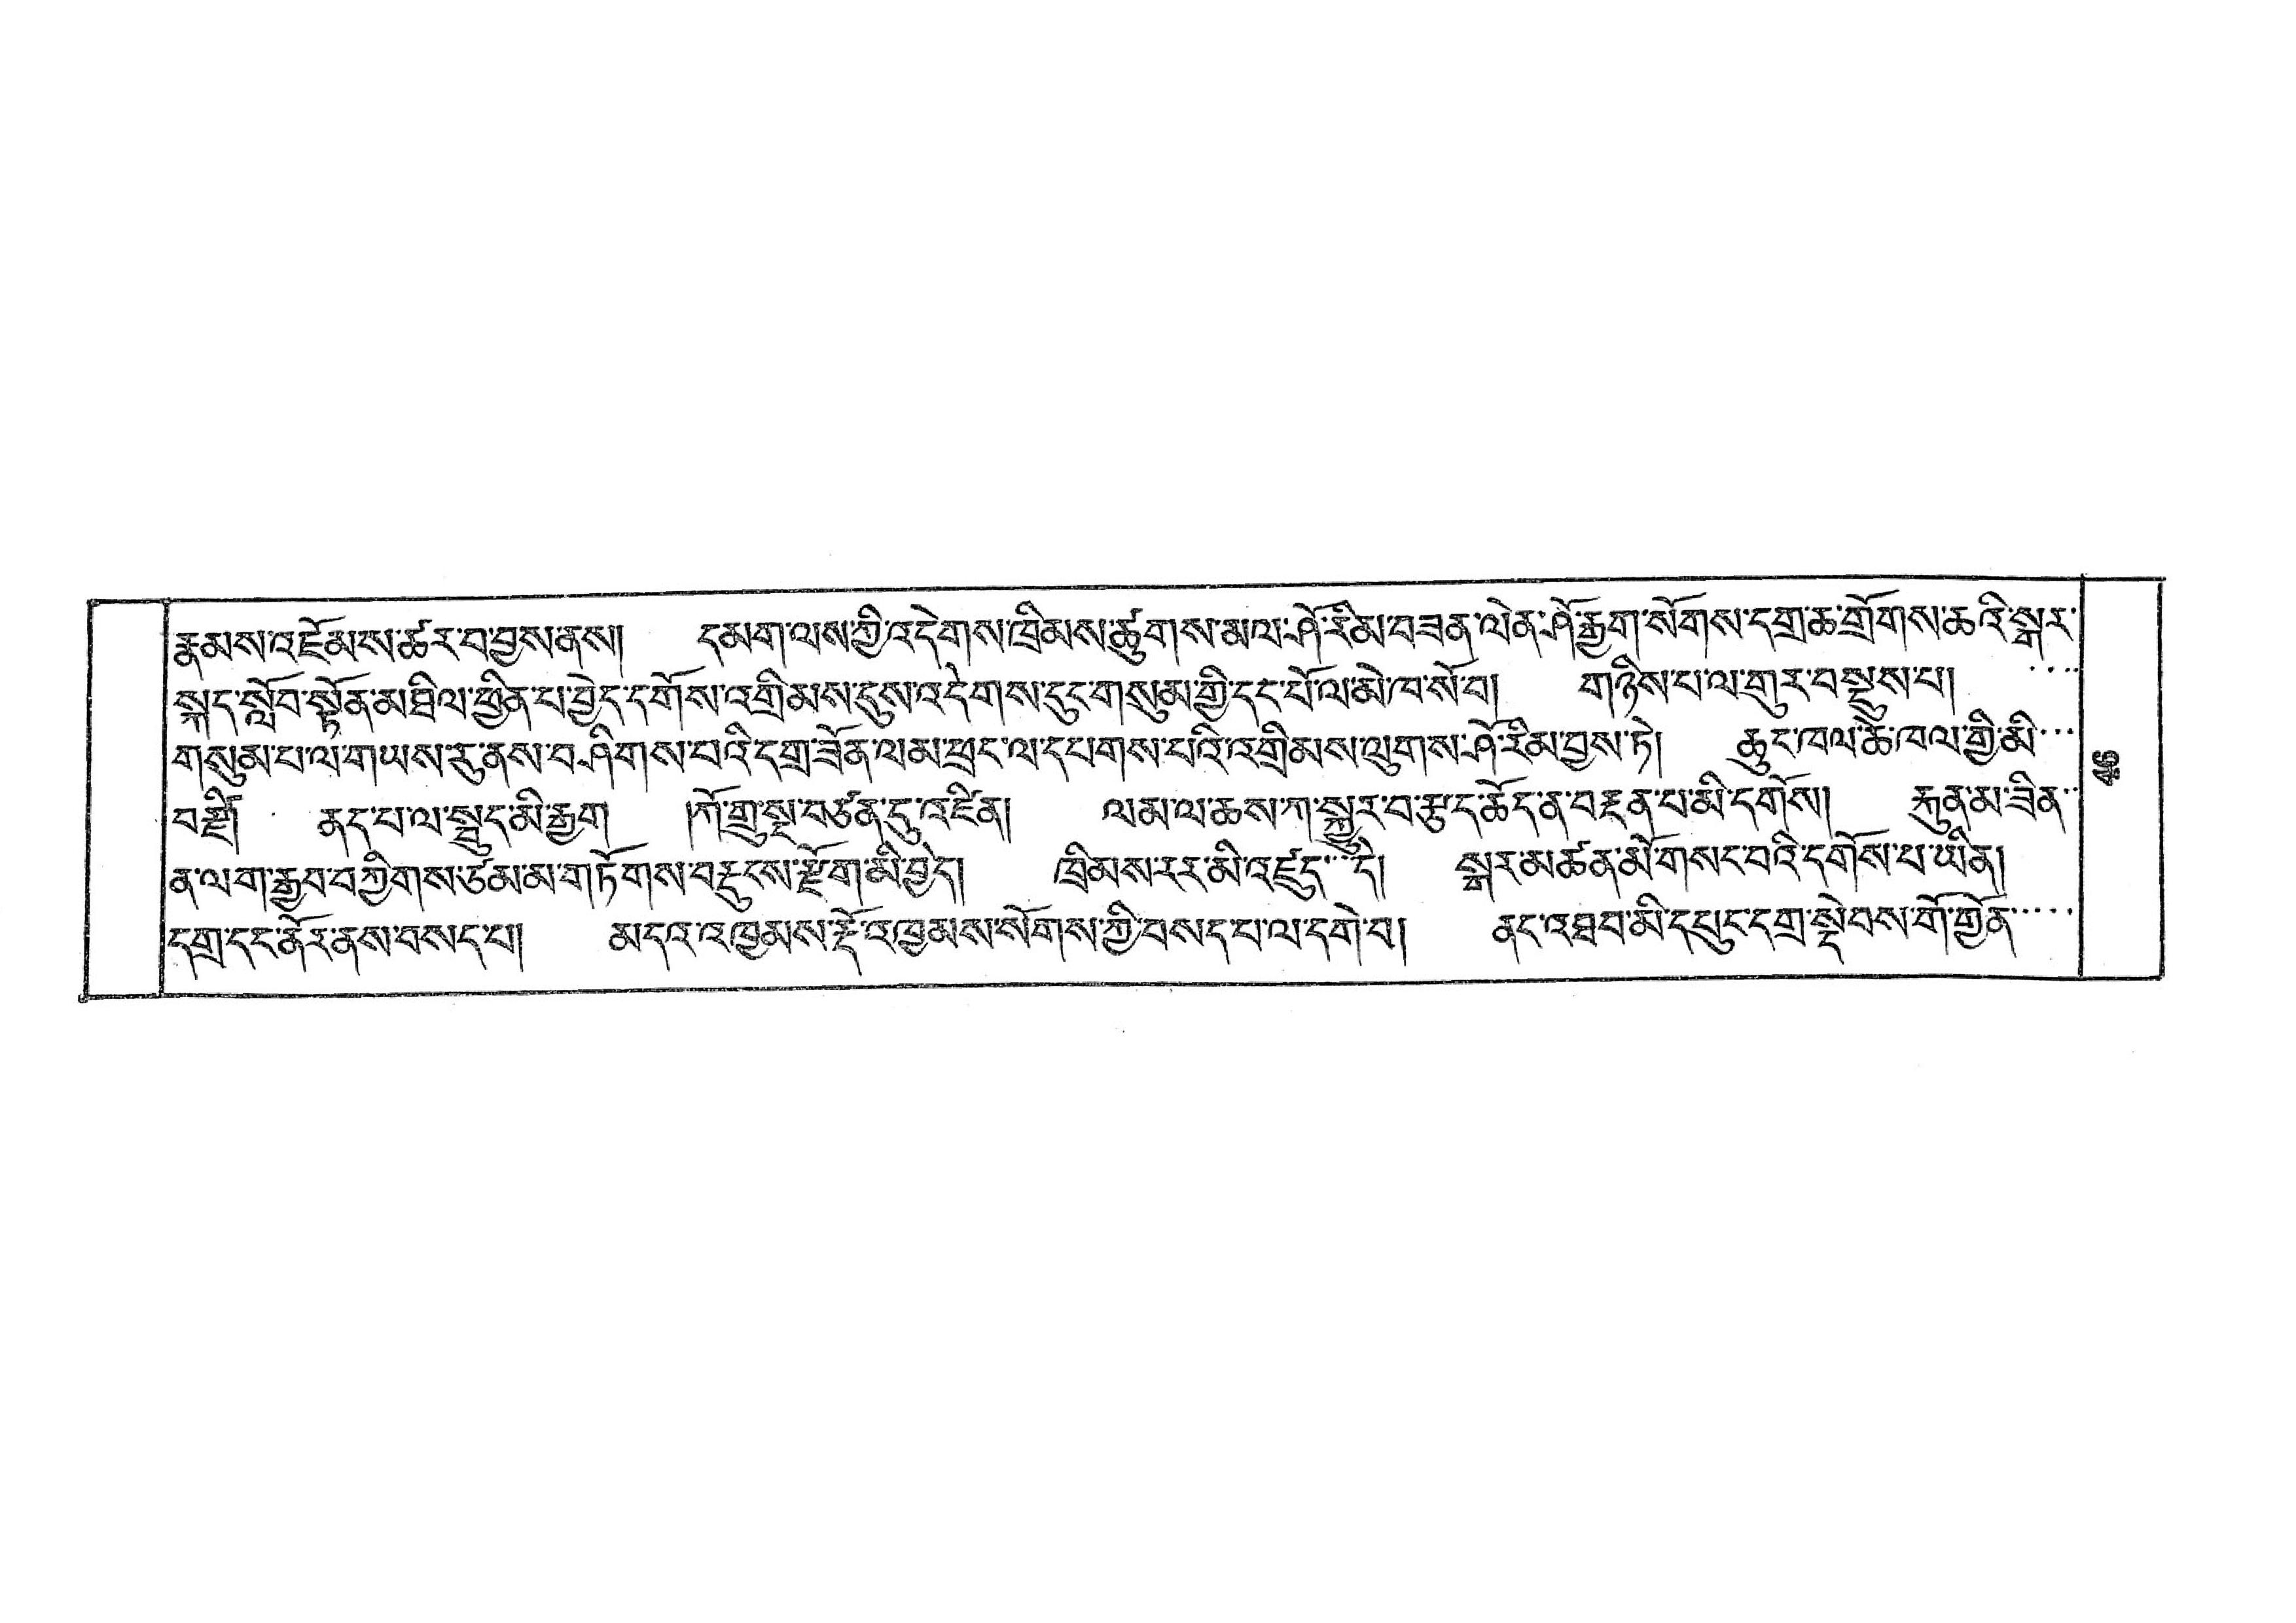 རྣམས་འཛོམས་ཚར་བ་བྱས་ནས།    དམག་ལས་ཀྱི་འདེགས་ཁྲིམས་ཚུགས་མལ་ཤོ་རིམ་བཟན་ལེན་ཤོ་རྒྱག་སོགས་དགྲ་ཆ་གྲོགས་ཆ་འི་སྒར་
སྐད་སློབ་སྟོན་མཐིལ་ཕྱིན་པ་བྱེད་དགོས་འགྲིམས་དུས་འདེགས་དུང་གསུམ་གྱི་དང་པོ་ལ་མེ་ཁ་སོ་བ།    གཉིས་པ་ལ་གྲུར་བསྡུས་པ།
གསུམ་པ་ལ་གཡས་རུ་ནས་བཤིགས་པའི་དགྲ་ཟོན་ལམ་ཕྲང་ལ་དཔགས་པའི་འགྲིམས་ལུགས་ཤོ་རིམ་བྱས་ཏེ།    ཆུང་ཁལ་ཆེ་ཁལ་གྱི་མི་
བརྗི།    ནད་པ་ལ་སྡུད་མི་རྒྱག    །ཀོ་གྲུ་སྔ་བཙན་དུ་འཛིན།    ལམ་ལ་ཆས་ཀ་སྐྱུར་བ་རྩད་ཆོད་ན་བརྡན་པ་མི་དགོས།    རྐུན་མ་ཟིན་
ན་ལག་རྒྱབ་བཀྱིགས་ཙམ་མ་གཏོགས་བརྡུངས་རྫོག་མི་བྱེད།    ཁྲིམས་རར་མི་འཛུད་དེ།    སྒར་མཚན་མོ་གསང་བའི་དགོས་པ་ཡིན།
དགྲ་དང་ནོར་ནས་བསད་པ།    མདའ་འཁྱམས་རྡོ་འཁྱམས་སོགས་ཀྱི་བསད་པ་ལ་དགེ་བ།    ནང་འཐབ་མི་དཔུང་དགྲ་སྡེབས་གོ་གྱོན་